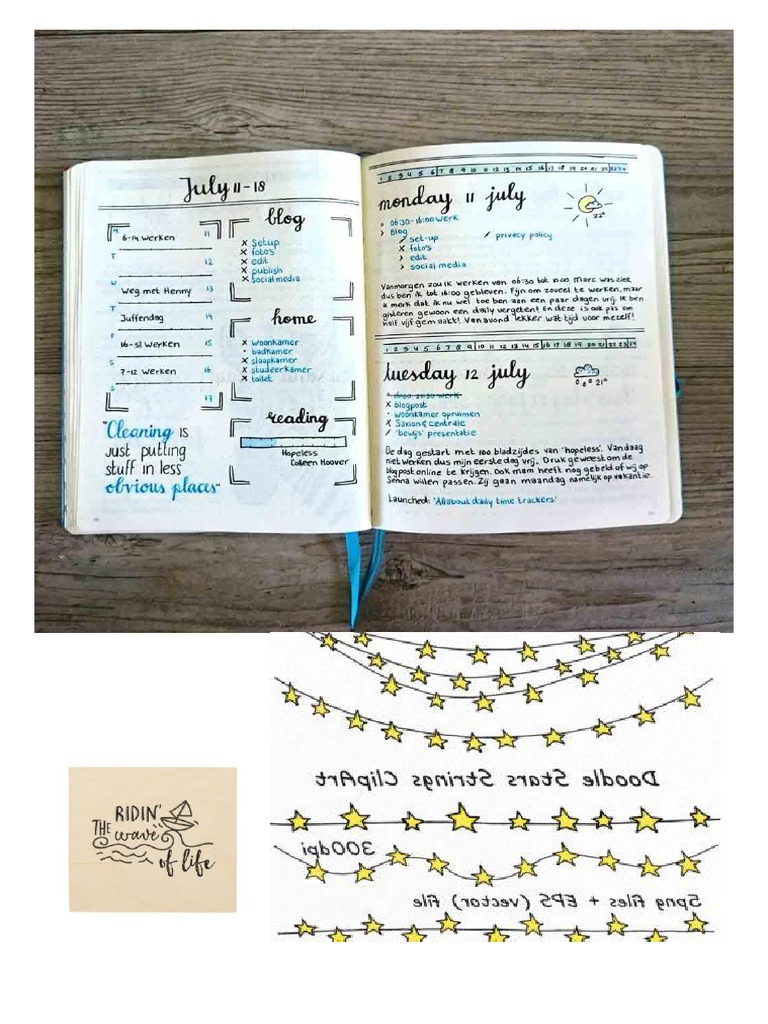 July 11-18
M
6-14 werken 11
T
12
W
Weg met Henny 13
T
Juffendag 14
F
16-sl werken 15
S
7-12 werken 16
S
17
"Cleaning is
just putting
stuff in less
obvious places"
blog
x setup
x foto's
x edit
x publish
x social media
home
x woonkamer
• badkamer
x slaapkamer
x studeerkamer
x toilet
reading
Hopeless
Colleen Hoover
1 2 3 4 5 6 7 8 9 10 11 12 13 14 15 16 17 18 19 20 21 22 23 24
monday 11 july
22°
• 06:30-16:00 werk
> Blog
/ set-up / privacy policy
x foto's
> edit
> social media
Vanmorgen zou ik werken van 06:30 tot 10:00. Marc was ziek
dus ben ik tot 16:00 gebleven. Fijn om zoveel te werken, maar
ik merk dat ik nu wel toe ben aan een paar dagen vrij. Ik ben
gisteren gewoon een daily vergeten! En deze is ook pas om
half vijf gemaakt! Vanavond lekker wat tijd voor mezelf!
1 2 3 4 5 6 7 8 9 10 11 12 13 14 15 16 17 18 19 20 21 22 23 24
tuesday 12 july
21°
• 16:00-20:30 werk
x blogpost
• woonkamer opruimen
x Saxion & centrale
/ 'bewijs' presentatie
De dag gestart met 100 bladzijdes van 'hopeless'. Vandaag
niet werken dus mijn eerste dag vrij. Druk geweest om de
blogpost online te krijgen. Ook mam heeft nog gebeld of wij op
Senna willen passen. Zij gaan maandag namelijk op vakantie.
Launched: 'All about daily time trackers'
Doodle Stars Strings ClipArt
300dpi
5png files + EPS (vector) file
RIDIN'
THE wave
of life